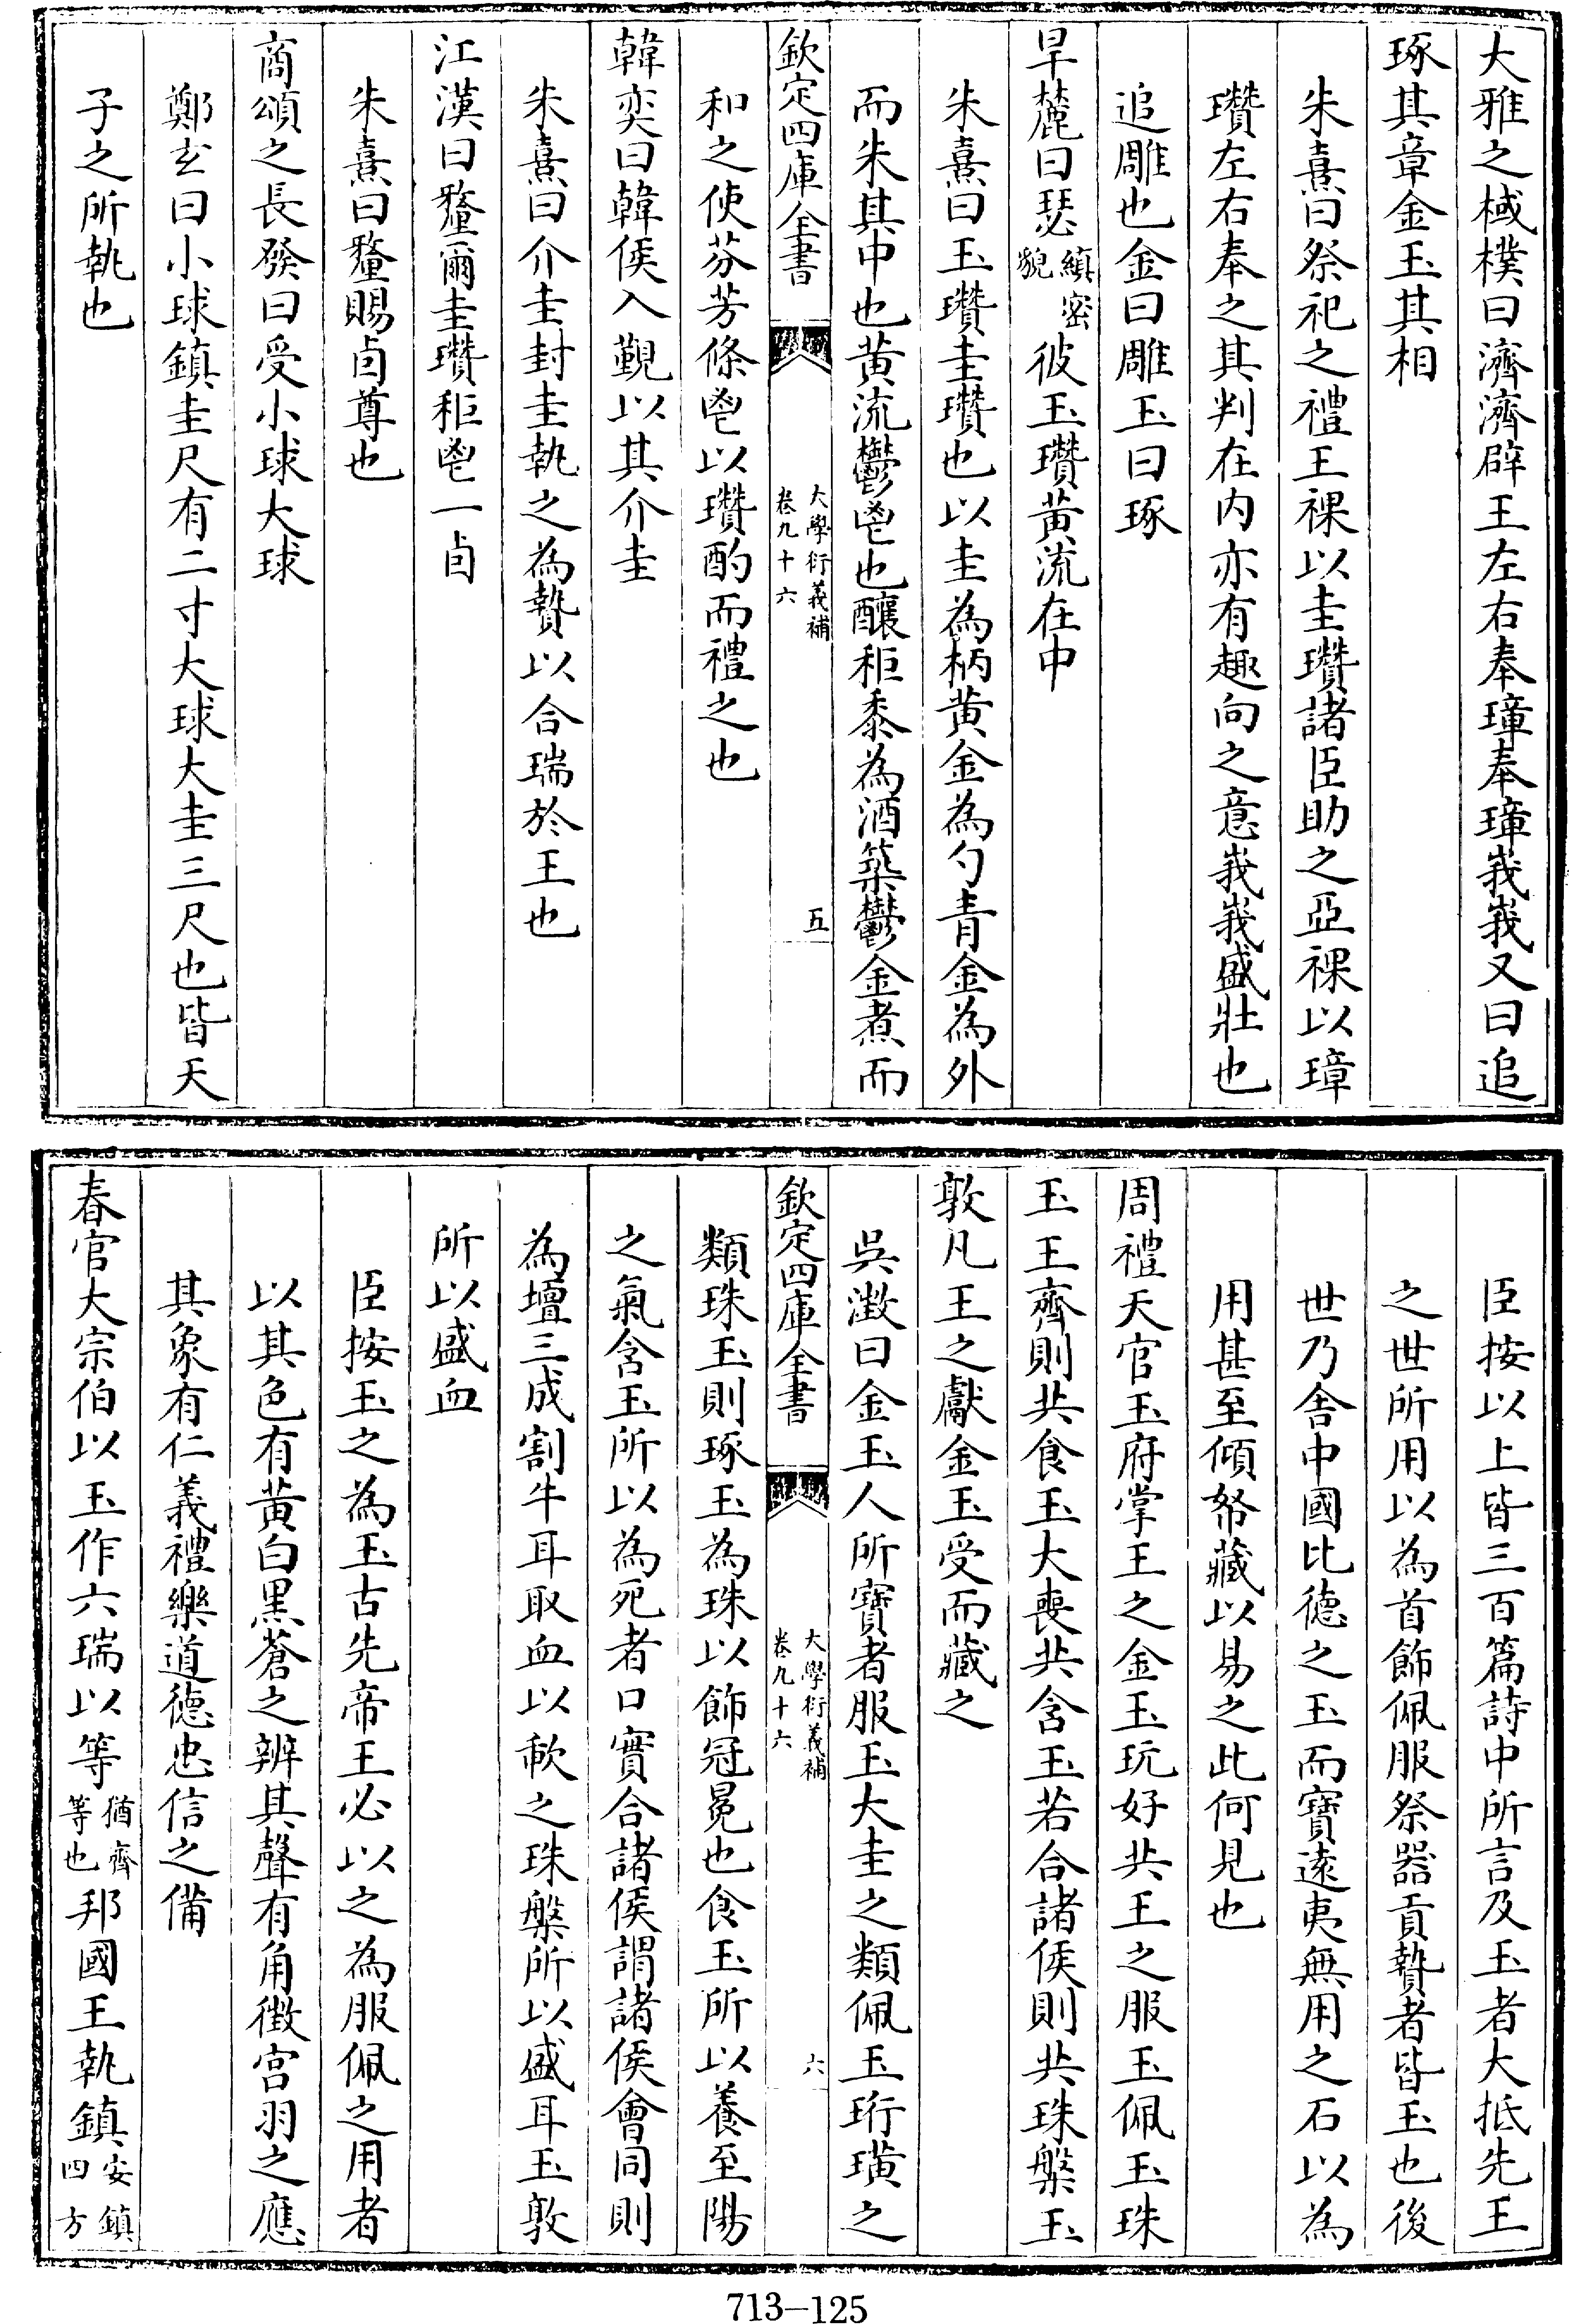 大雅之棫樸曰濟濟辟王左右奉璋奉璋峩峩又曰追
琢其章金玉其相
朱熹曰祭祀之禮王祼以圭瓚諸臣助之亞祼以璋
瓚左右奉之其判在内亦有趣向之意峩峩盛壯也
追雕也金曰雕玉曰琢
旱麓曰瑟縝密貌彼玉瓚黄流在中
朱熹曰玉瓚圭瓚也以圭為柄黄金為勺青金為外
而朱其中也黄流鬱鬯也釀秬黍為酒築鬱金煮而
欽定四庫全書
大學衍義補
卷九十六
五
和之使芬芳條鬯以瓚酌而禮之也
韓奕曰韓侯入覲以其介圭
朱熹曰介圭封圭執之為贄以合瑞於王也
江漢曰釐爾圭瓚秬鬯一卣
朱熹曰釐賜卣尊也
商頌之長發曰受小球大球
鄭玄曰小球鎮圭尺有二寸大球大圭三尺也皆天
子之所執也
臣按以上皆三百篇詩中所言及玉者大抵先王
之世所用以為首飾佩服祭器貢贄者皆玉也後
世乃舍中國比德之玉而寶遠夷無用之石以為
用甚至傾帑藏以易之此何見也
周禮天官玉府掌王之金玉玩好共王之服玉佩玉珠
玉王齊則共食玉大喪共含玉若合諸侯則共珠槃玉
敦凡王之獻金玉受而藏之
吳澂曰金玉人所寶者服玉大圭之類佩玉珩璜之
欽定四庫全書
大學衍義補
卷九十六
六
類珠玉則琢玉為珠以飾冠冕也食玉所以養至陽
之氣含玉所以為死者口實合諸侯謂諸侯會同則
為壇三成割牛耳取血以歃之珠槃所以盛耳玉敦
所以盛血
臣按玉之為玉古先帝王必以之為服佩之用者
以其色有黄白黑蒼之辨其聲有角徵宫羽之應
其象有仁義禮樂道德忠信之備
春官大宗伯以玉作六瑞以等猶齊等也邦國王執鎮安鎮四方
713–125